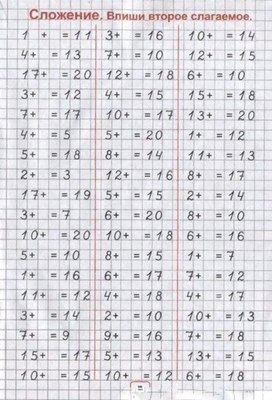 Сложение. Впиши второе слагаемое.
1 + = 11 3+ = 16 10+ = 14
4+ = 13 7+ = 10 12+ = 15
17+ = 20 12+ = 18 6+ = 10
3+ = 12 4+ = 15 15+ = 18
7+ = 17 10+ = 17 13+ = 20
4+ = 5 5+ = 20 1+ = 12
5+ = 18 8+ = 14 11+ = 13
2+ = 3 12+ = 16 8+ = 17
17+ = 19 5+ = 15 2+ = 14
3+ = 7 6+ = 20 8+ = 10
10+ = 20 10+ = 18 6+ = 16
5+ = 10 8+ = 15 1+ = 7
1+ = 16 6+ = 17 7+ = 12
11+ = 12 4+ = 18 4+ = 17
3+ = 14 2+ = 10 8+ = 13
7+ = 9 9+ = 16 7+ = 18
15+ = 17 5+ = 13 13+ = 15
10+ = 15 10+ = 12 6+ = 18